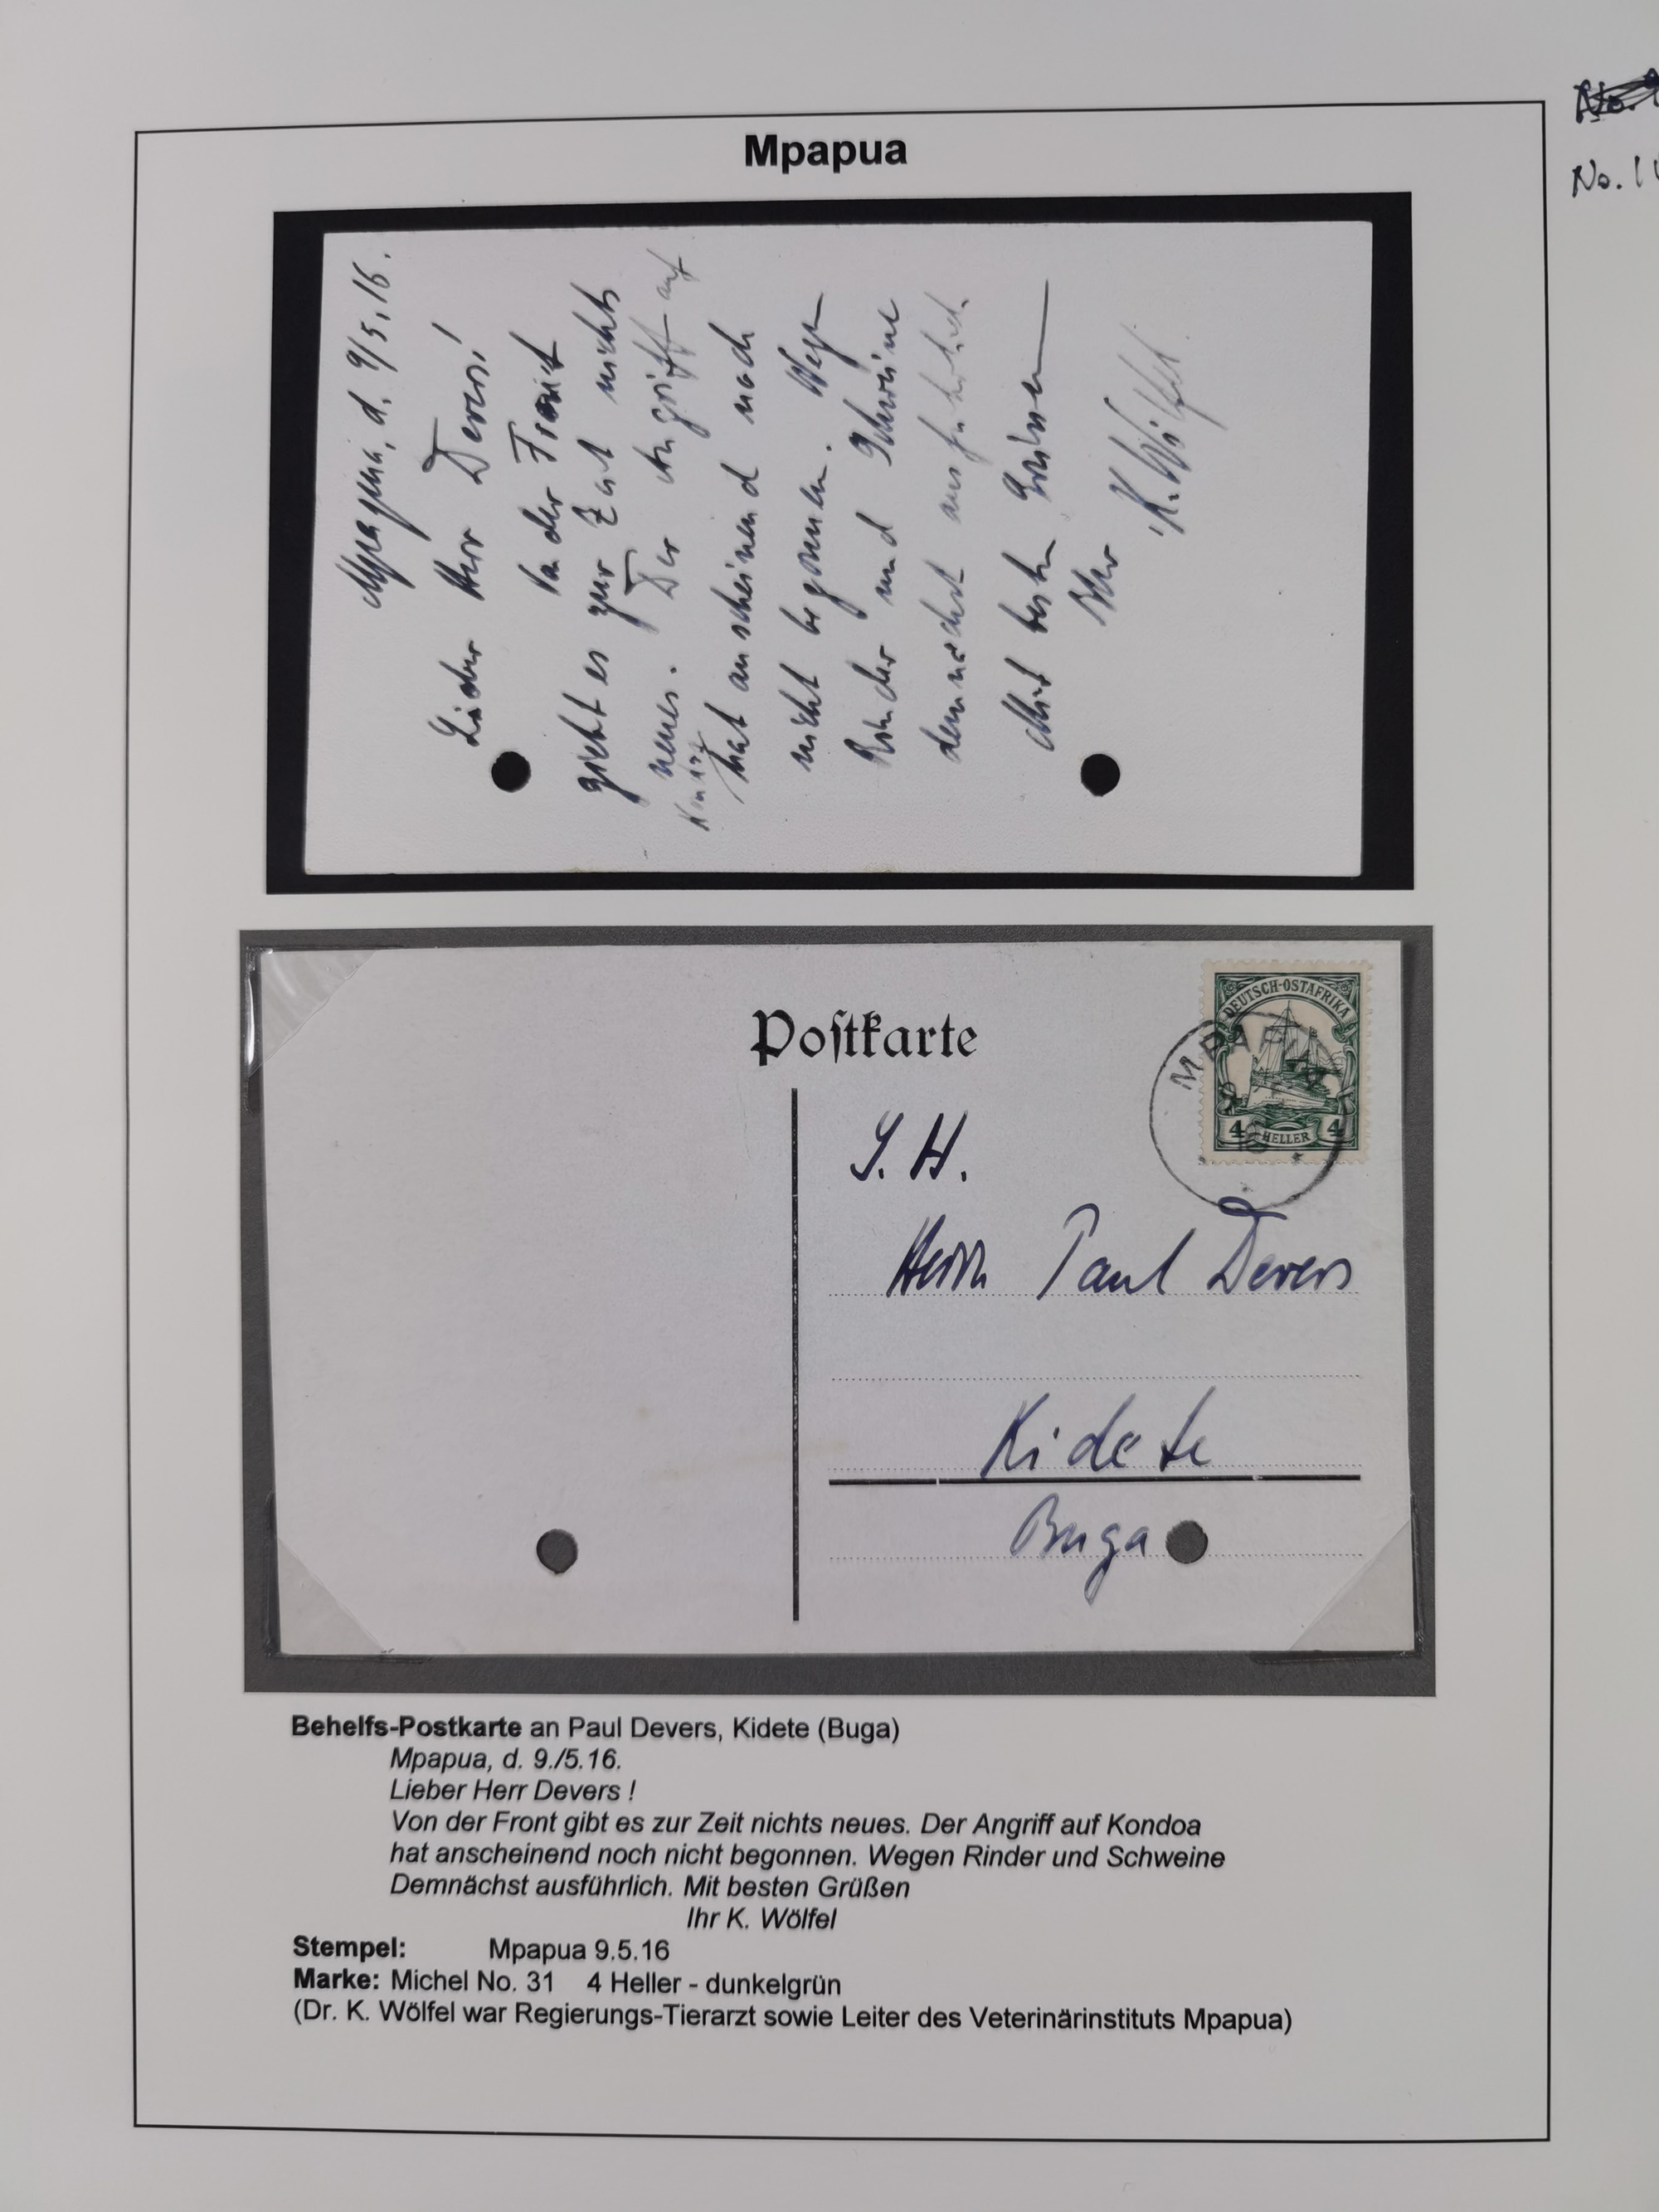 No. 1
Mpapua
Mpapua, d. 9/5.16.
Lieber Herr Devers!
Von der Front
giebt es zur Zeit nichts
neues. Der Angriff auf
hat anscheinend noch
nicht begonnen. Wegen
Rinder und Schweine
demnächst ausführlich.
Mit besten Grüssen
Ihr
K. Wölfel.
DEUTSCH-OSTAFRIKA
4 HELLER 4
MPAPUA
Postkarte
S. H.
Herrn Paul Devers
Kidete
Buga
Behelfs-Postkarte an Paul Devers, Kidete (Buga)
Mpapua, d. 9./5.16.
Lieber Herr Devers !
Von der Front gibt es zur Zeit nichts neues. Der Angriff auf Kondoa
hat anscheinend noch nicht begonnen. Wegen Rinder und Schweine
Demnächst ausführlich. Mit besten Grüßen
Ihr K. Wölfel
Stempel: Mpapua 9.5.16
Marke: Michel No. 31 4 Heller - dunkelgrün
(Dr. K. Wölfel war Regierungs-Tierarzt sowie Leiter des Veterinärinstituts Mpapua)